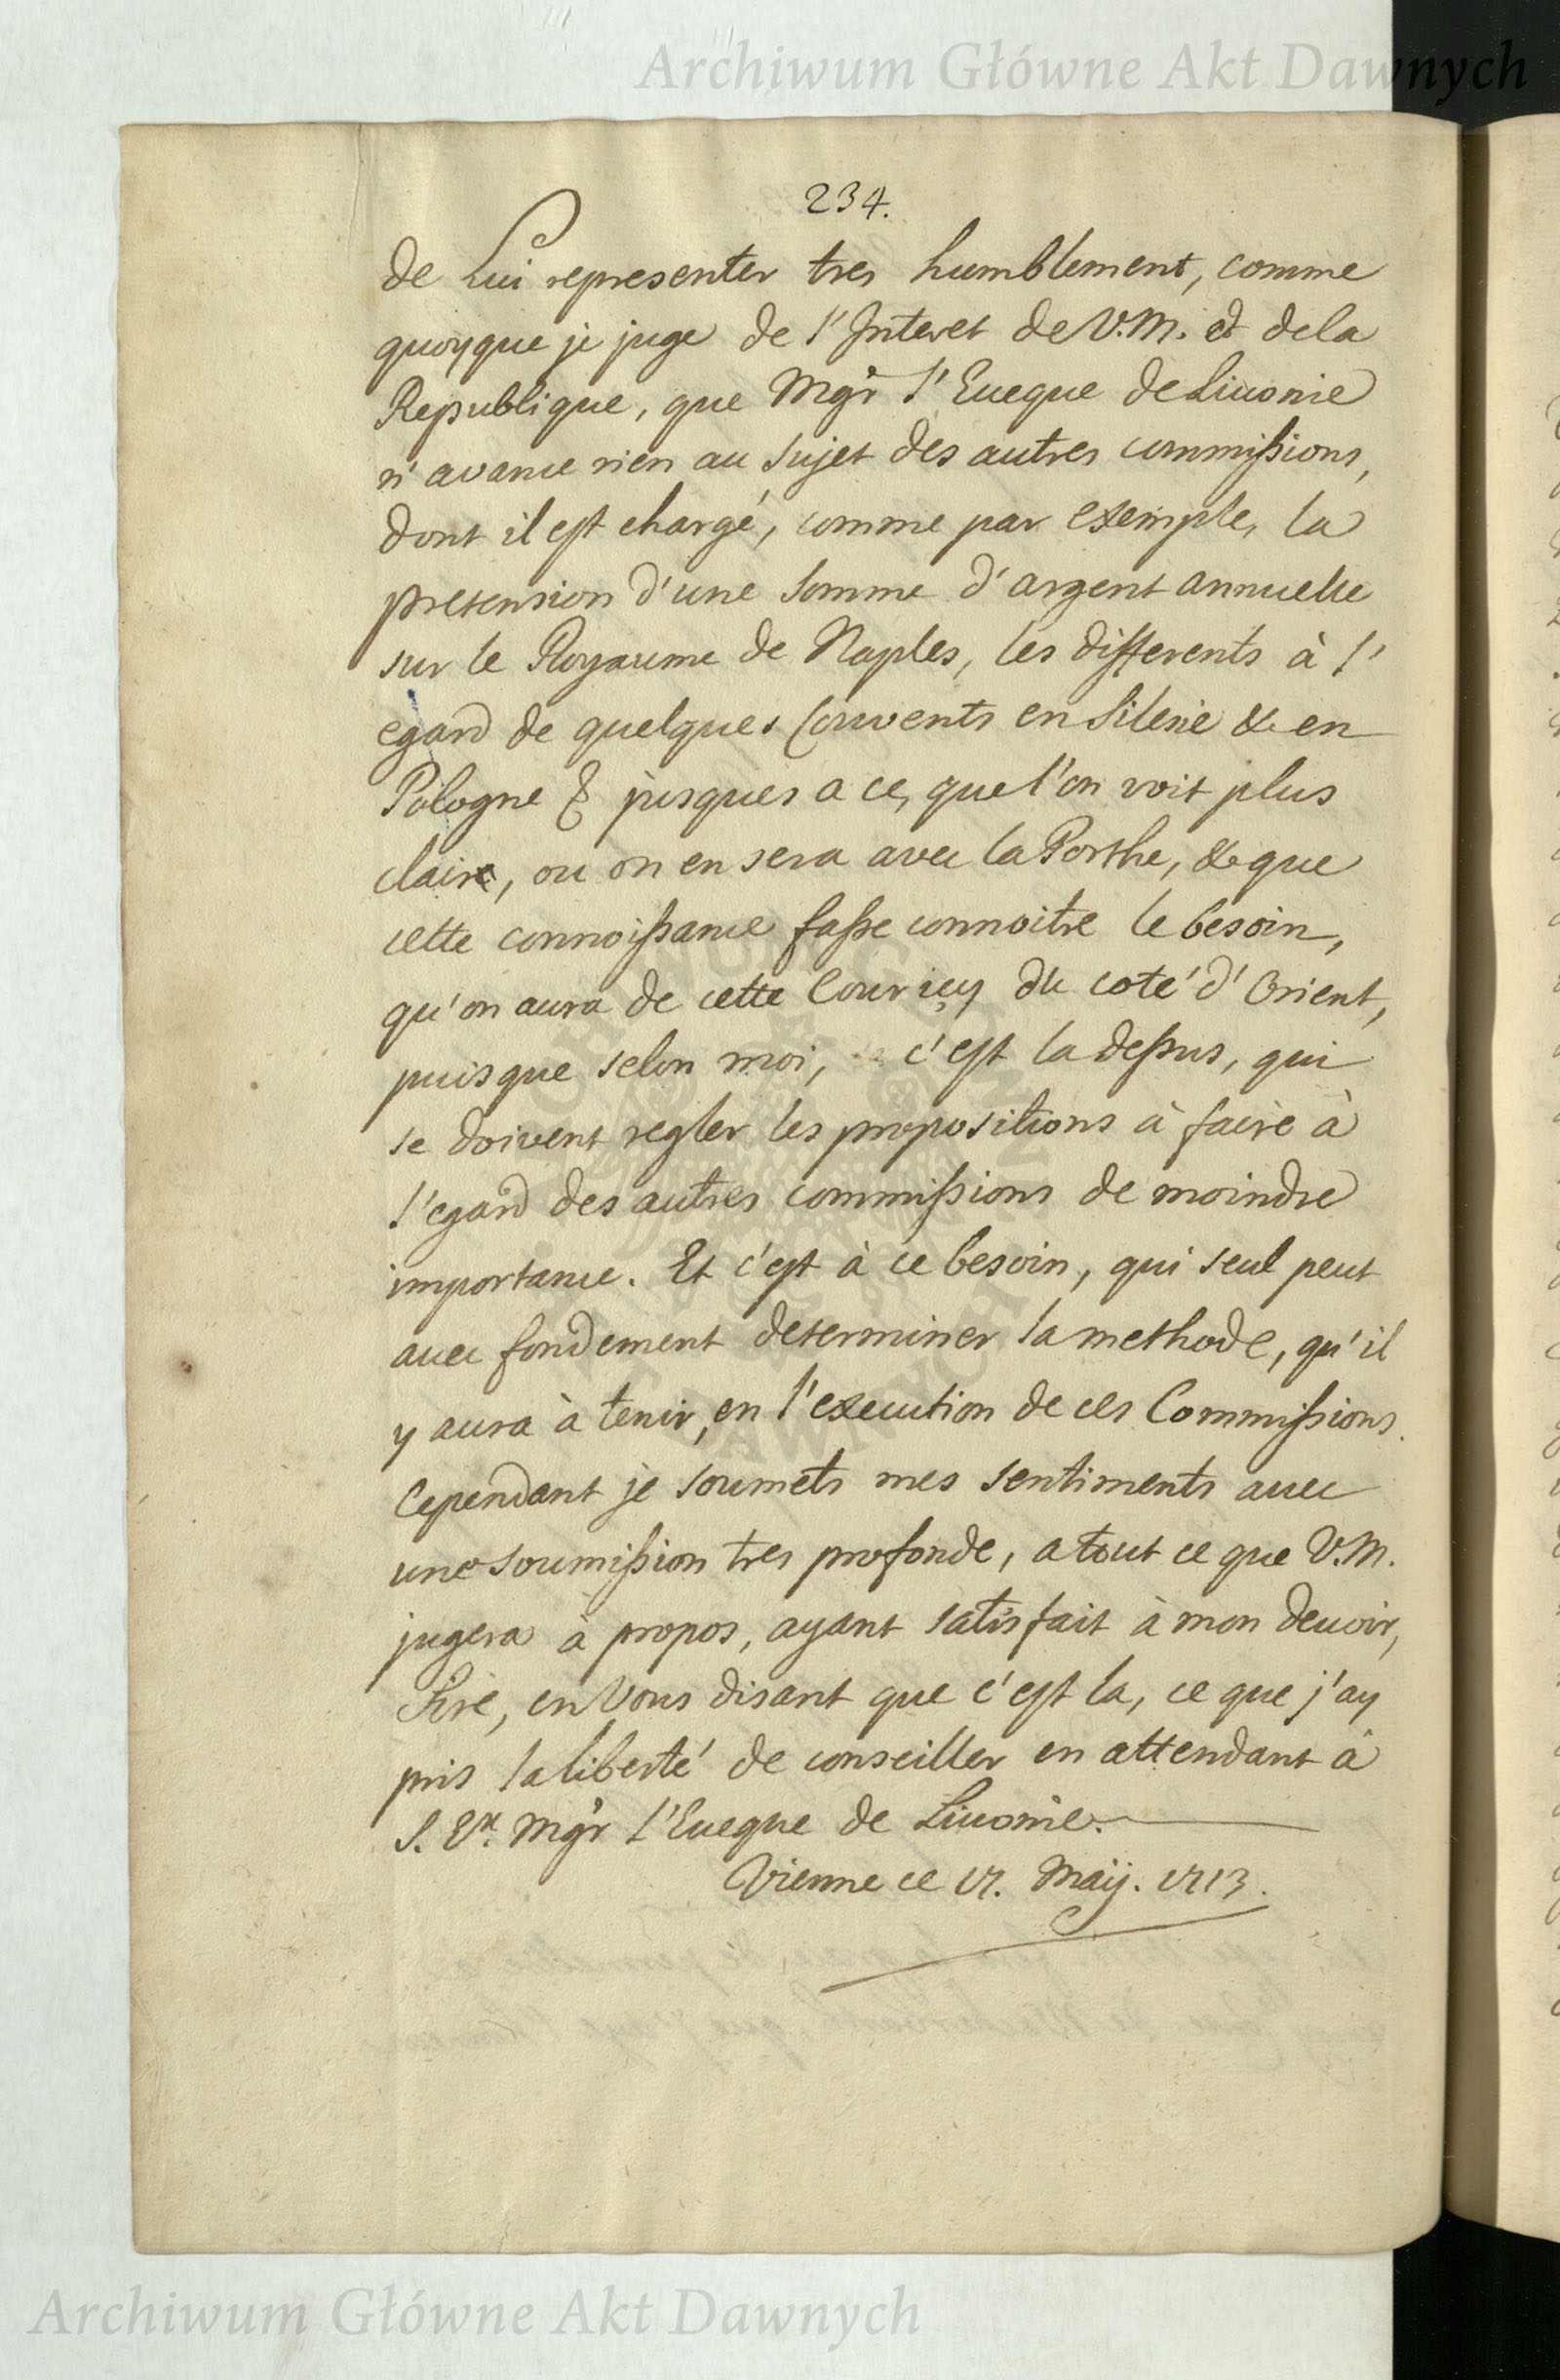 Archiwum Główne Akt Dawnych
234.
de Lui representer tres humblement, comme
quoyque je juge de l'Interet de V.M. et de la
Republique, que Mgr l'Eueque de Liuonie
n'avance rien au sujet des autres commissions,
dont il est chargé, comme par exemple, la
pretension d'une somme d'argent annuelle
sur le Royaume de Naples, les differents à l'
egard de quelques Couvents en Silesie & en
Pologne & jusques a ce, que l'on voit plus
claire, ou on en sera avec la Porthe, & que
cette connoissance fasse connoitre le besoin,
qu'on aura de cette Cour icy du coté d'Orient,
puisque selon moi, c'est la dessus, qui
se doivent regler les propositions à faire à
l'egard des autres commissions de moindre
importance. Et c'est à ce besoin, qui seul peut
avec fondement determiner la methode, qu'il
y aura à tenir, en l'execution de ces Commissions.
Cependant je soumets mes sentiments avec
une soumission tres profonde, a tout ce que V.M.
jugera à propos, ayant satisfait à mon deuoir,
Sire, en Vous disant que c'est la, ce que j'ay
pris la liberté de conseiller en attendant à
S. Ex. Mgr l'Eueque de Liuonie.
Vienne ce 17. Maij. 1713.
Archiwum Główne Akt Dawnych